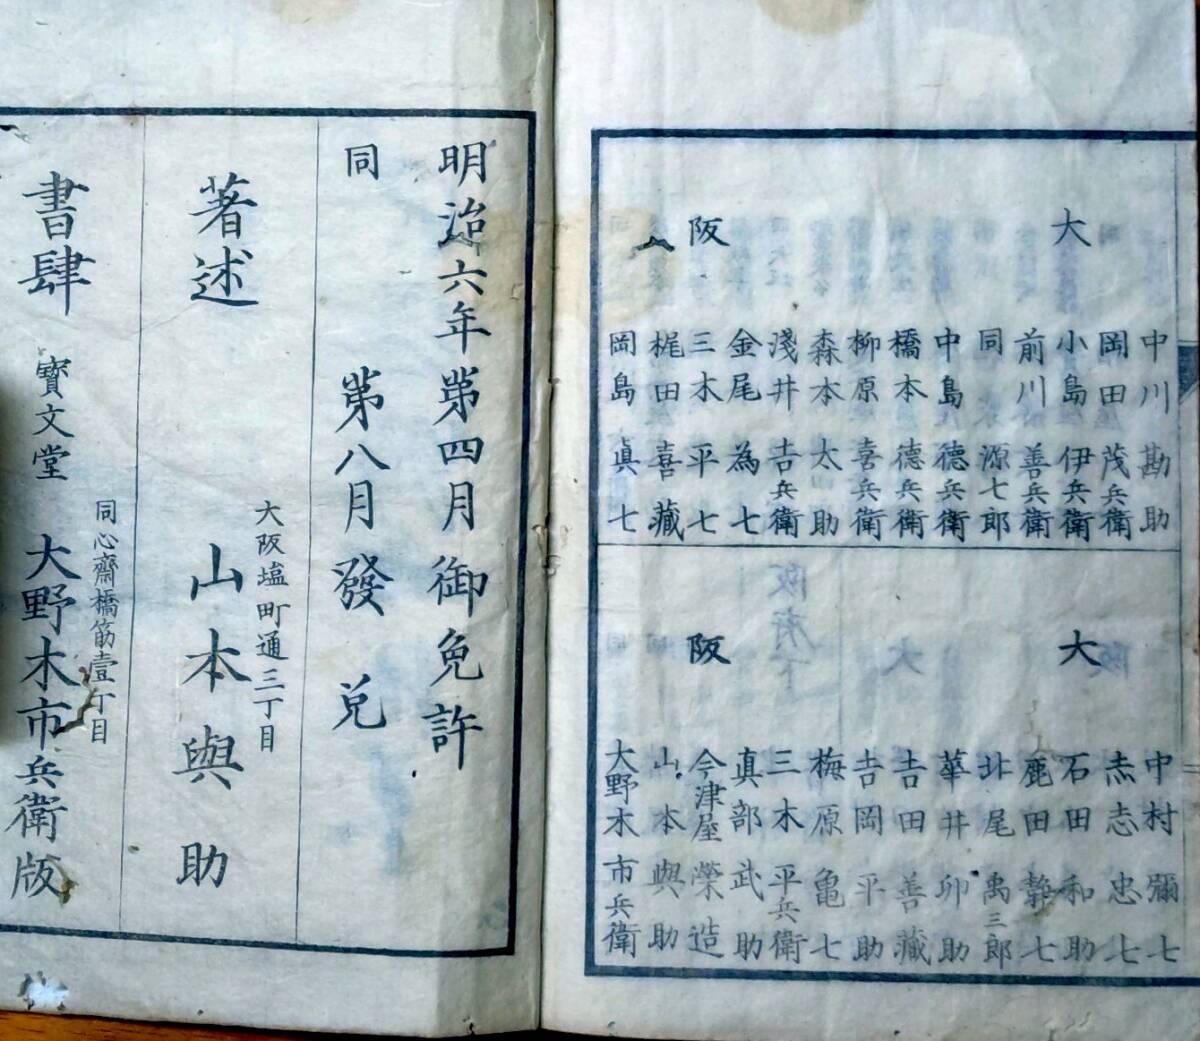 大阪
中川勘助
岡田茂兵衛
小島伊兵衛
前川善兵衛
同源七郎
中島德兵衛
橋本德兵衛
柳原喜兵衛
森本太助
淺井吉兵衛
金尾為七
三木平七
梶田喜藏
岡島眞七
大阪
中村彌七
赤志忠七
石田和助
鹿田靜七
北尾禹三郎
華井卯助
吉田善藏
吉岡平助
梅原亀七
三木平兵衛
真部武助
今津屋榮造
山本與助
大野木市兵衛
明治六年第四月御免許
同第八月發兌
大阪塩町通三丁目
著述山本與助
同心齋橋筋壹丁目
書肆寳文堂大野木市兵衛版